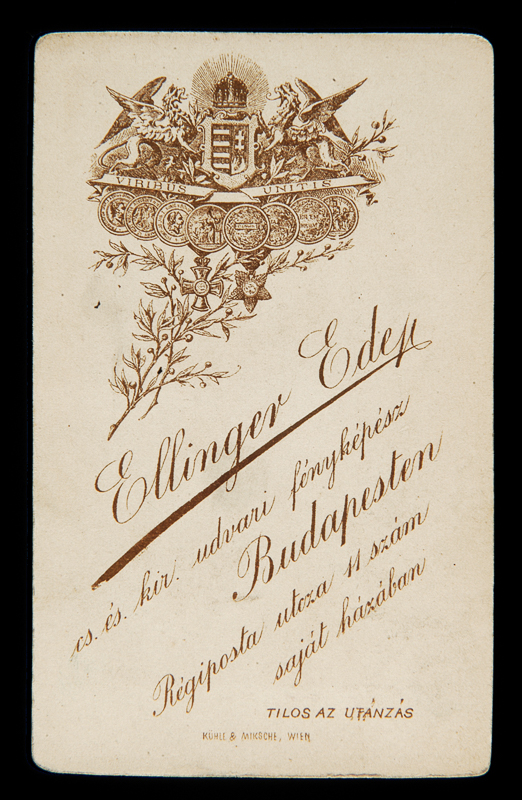 VIRIBUS UNITIS
Ellinger Ede
cs. és. kir. udvari fényképész
Budapesten
Régiposta utcza 11 szám
saját házában
TILOS AZ UTÁNZÁS
KÜHLE & MIKSCHE, WIEN